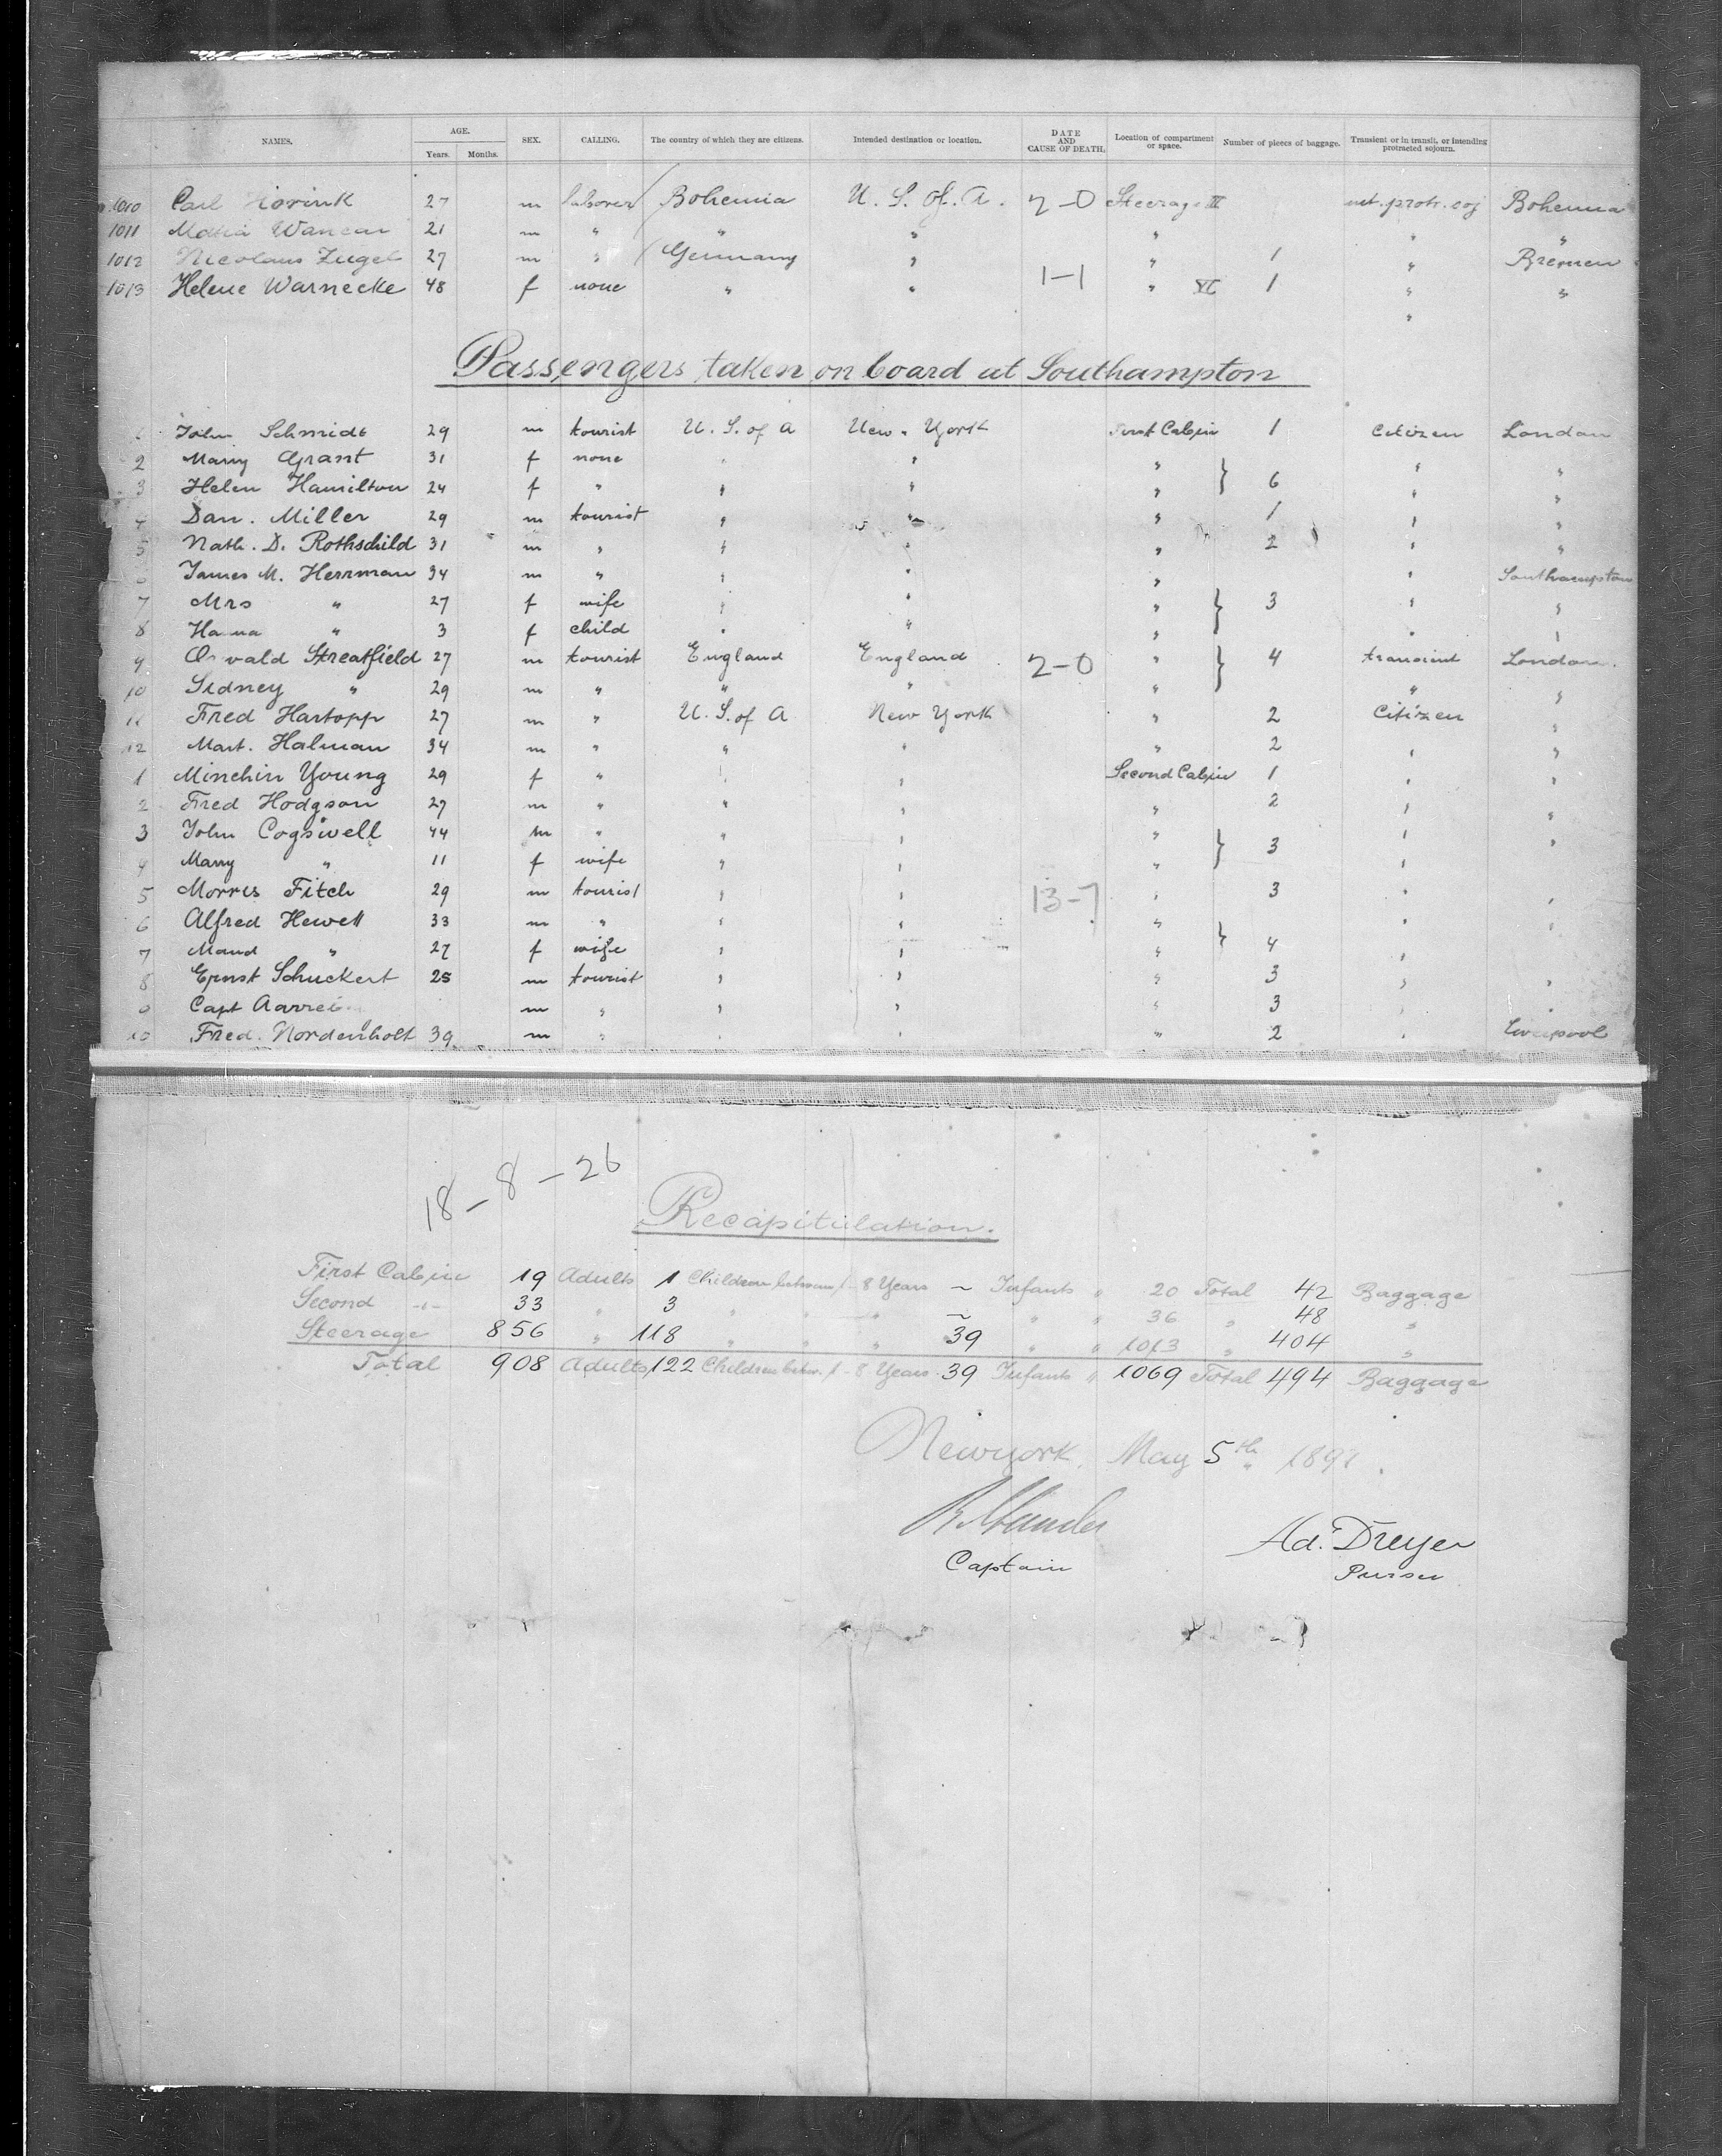 NAMES. AGE. Years. Months. SEX. CALLING. The country of which they are citizens. Intended destination or location. DATE AND CAUSE OF DEATH. Location of compartment or space. Number of pieces of baggage. Transient or in transit, or intending protracted sojourn.
1010 Carl 27 m laborer Bohemia U. S. of. A. 2-0 Steerage III int. protr. soj Bohemia
1011 Maria 21 m " " " " " "
1012 Nicolaus Zugel 27 m " Germany " " 1 " Bremen
1013 Helene Warnecke 48 f none " " 1-1 " VI 1 " "
"
Passengers taken on board at Southampton
John Schmidt 29 m tourist U. S. of A New York First Cabin 1 Citizen London
2 Marry Grant 31 f none " " " " "
3 Helen Hamilton 24 f " " " " } 6 " "
4 Dan. Miller 29 m tourist " " " 1 " "
5 Nath. D. Rothschild 31 m " " " " 2 " "
James M. Herrman 34 m " " " " " Southampton
7 Mrs " 27 f wife " " " } 3 " "
8 " 3 f child " " " " "
9 Oswald Streatfield 27 m tourist England England 2-0 " } 4 transient London
10 Sidney " 29 m " " " " " "
11 Fred Hartopp 27 m " U. S. of A New York " 2 Citizen "
12 Mart. Halman 34 m " " " " 2 " "
1 Minchin Young 29 f " " " Second Cabin 1 " "
2 Fred Hodgson 27 m " " " " 2 " "
3 John Cogswell 44 m " " " " } 3 " "
4 Marry " 11 f wife " " " "
5 Morris Fitch 29 m tourist " " 13-7 " 3 " "
6 Alfred Hewett 33 m " " " " " "
7 Maud " 27 f wife " " " } 4 "
8 Ernst Schuckert 25 m tourist " " " 3 " "
Capt m " " " " 3 " "
10 Fred. Nordenholt 39 m " " " " 2 " Liverpool
18-8-26
Recapitulation.
First Cabin 19 Adults 1 Children between 1-8 Years ~ Infants " 20 Total 42 Baggage
Second -"- 33 " 3 " " " ~ " " 36 " 48 "
Steerage 856 " 118 " " " 39 " " 1013 " 404 "
Total 908 Adults, 122 Children betw. 1-8 Years. 39 Infants " 1069 Total 494 Baggage
Newyork, May 5th 189
Captain
Ad. Dreyer
Purser